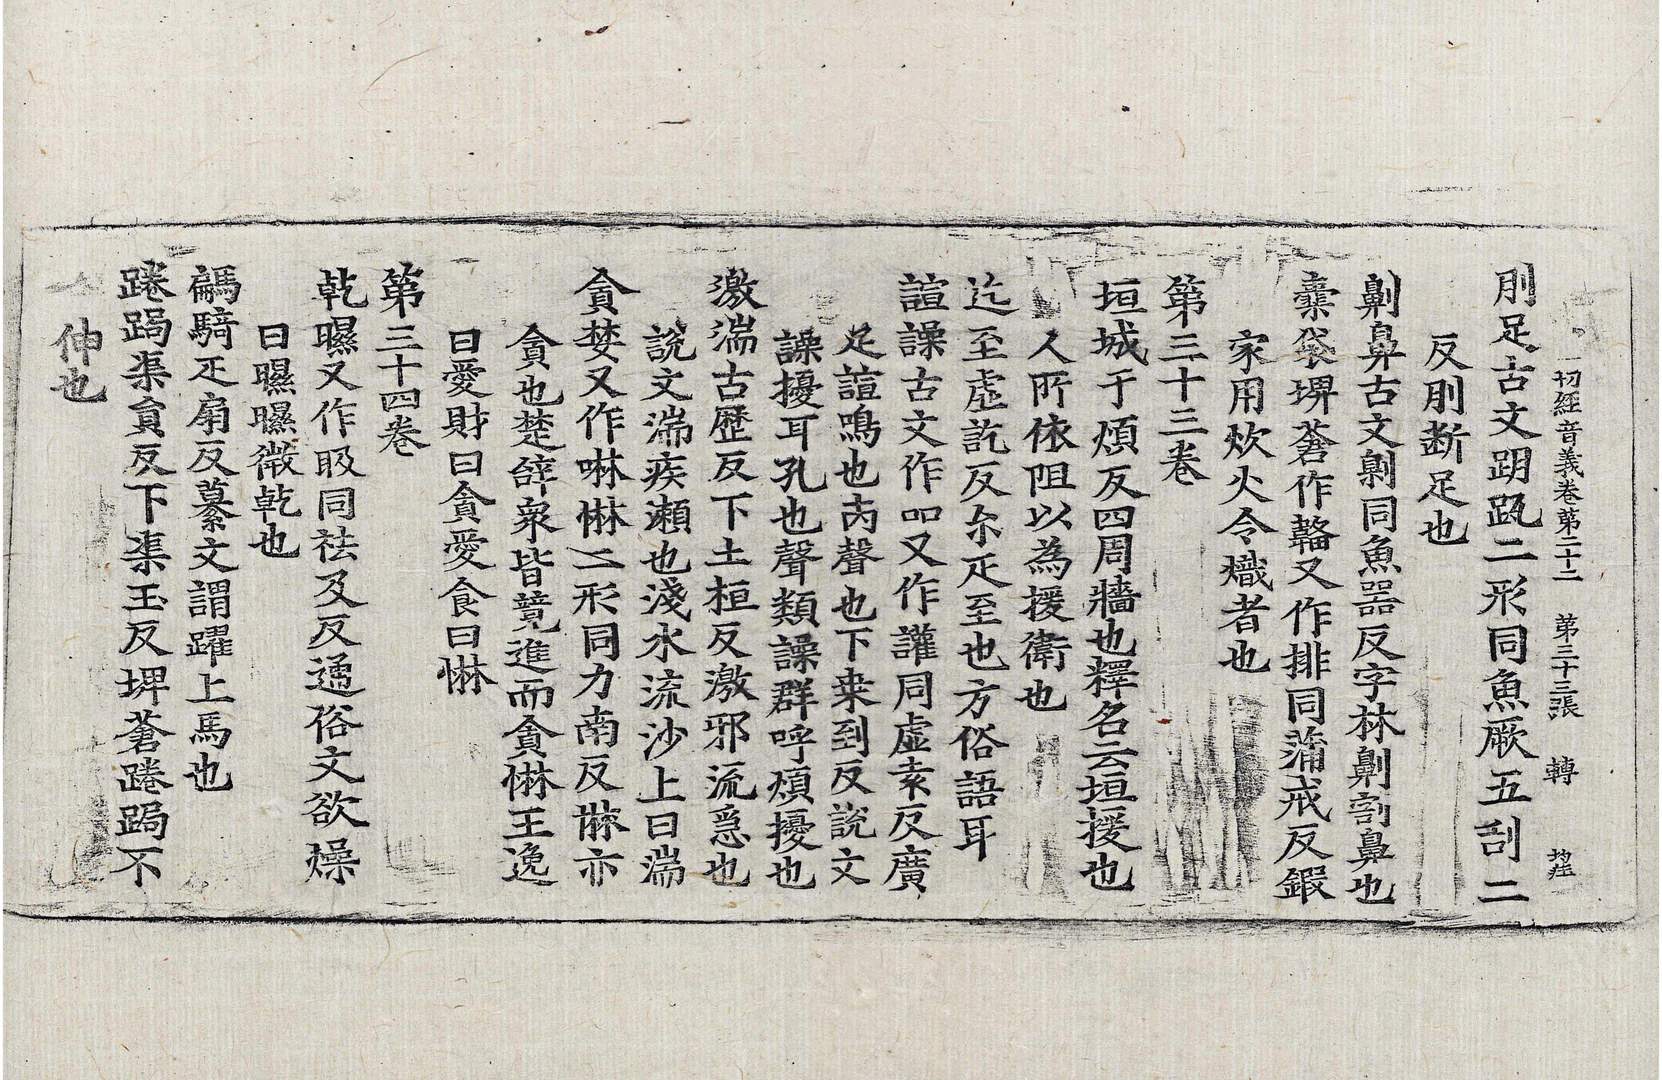 一切經音義卷第二十二　第三十三張　轉
刖足古文跀𧿁二形同魚厥五刮二
反刖斷足也
劓鼻古文劓同魚器反字林劓割鼻也
橐袋埤蒼作韛又作排同蒲戒反鍜
家用炊火令熾者也
第三十三卷
垣城于煩反四周牆也釋名云垣援也
人所依阻以為援衛也
迄至虛訖反尒疋至也方俗語耳
諠譟古文作吅又作讙同虛袁反廣
疋諠鳴也亦聲也下桒到反說文
譟擾耳孔也聲類譟群呼煩擾也
激湍古歷反下土桓反激邪流急也
說文湍疾瀨也淺水流沙上曰湍
貪婪又作啉惏二形同力南反惏亦
貪也楚辝衆皆競進而貪惏王逸
曰愛財曰貪愛食曰惏
第三十四卷
乾㬤又作㫺同祛及反通俗文欲燥
曰㬤㬤微乾也
騗騎疋扇反纂文謂躍上馬也
踡跼渠貟反下渠玉反埤蒼踡跼不
伸也